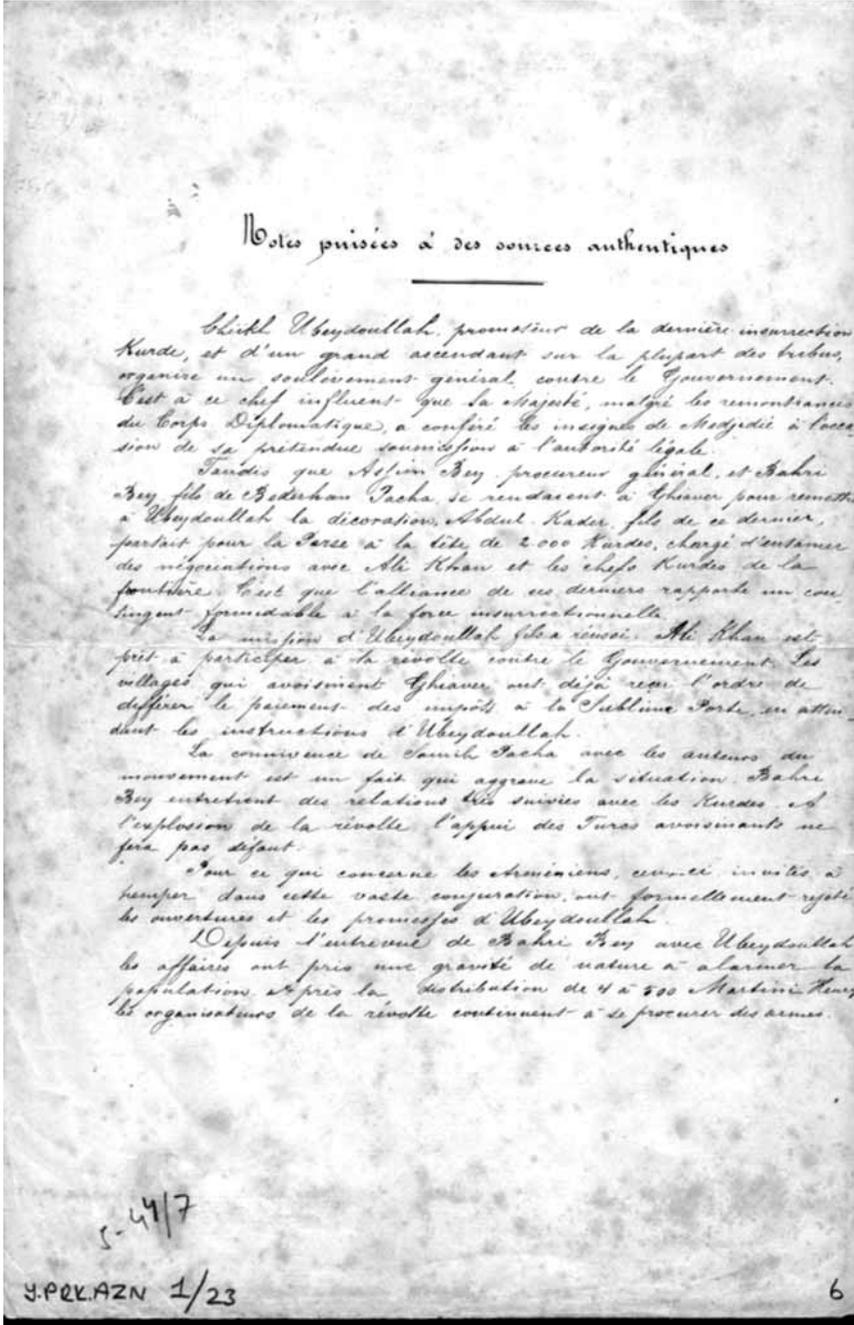 Notes puisées à des sources authentiques
Cheikh Ubeydoullah, promoteur de la dernière insurrection
Kurde, et d'un grand ascendant sur la plupart des tribus,
organise un soulèvement général, contre le Gouvernement.
C'est à ce chef influent que Sa Majesté, malgré les remontrances
du Corps Diplomatique, a conféré les insignes de Medjidié à l'occa-
sion de sa prétendue soumission à l'autorité légale.
Tandis que Assim Bey, procureur général, et Bahri
Bey, fils de Bederhan Pacha, se rendaient à Ghiaver pour remettre
à Ubeydoullah la décoration, Abdul-Kader, fils de ce dernier,
partait pour la Perse à la tête de 2.000 Kurdes, chargé d'entamer
des négociations avec Ali Khan et les chefs Kurdes de la
frontière. C'est que l'alliance de ces derniers rapporte un con-
tingent formidable à la force insurrectionnelle.
La mission d'Ubeydoullah fils a réussi. Ali Khan est
prêt à participer à la révolte contre le Gouvernement. Les
villages qui avoisinent Ghiaver ont déjà reçu l'ordre de
différer le paiement des impôts à la Sublime Porte, en atten-
dant les instructions d'Ubeydoullah.
La connivence de Samih Pacha avec les auteurs du
mouvement est un fait qui aggrave la situation. Bahri
Bey entretient des relations très suivies avec les Kurdes. A
l'explosion de la révolte l'appui des Turcs avoisinants ne
fera pas défaut.
Pour ce qui concerne les Arméniens, ceux-ci, invités à
tremper dans cette vaste conjuration, ont formellement rejeté
les ouvertures et les promesses d'Ubeydoullah.
Depuis l'entrevue de Bahri Bey avec Ubeydoullah
les affaires ont pris une gravité de nature à alarmer la
population. Après la distribution de 4 à 500 Martini Henry
les organisateurs de la révolte continuent à se procurer des armes.
5-44/7
Y.PRK.AZN 1/23
6